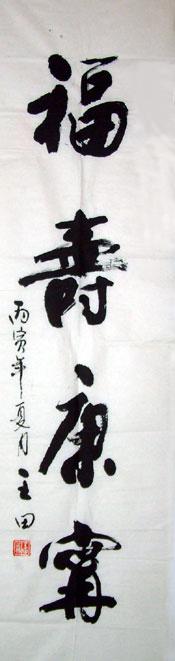 福壽康甯
丙寅年夏月王田